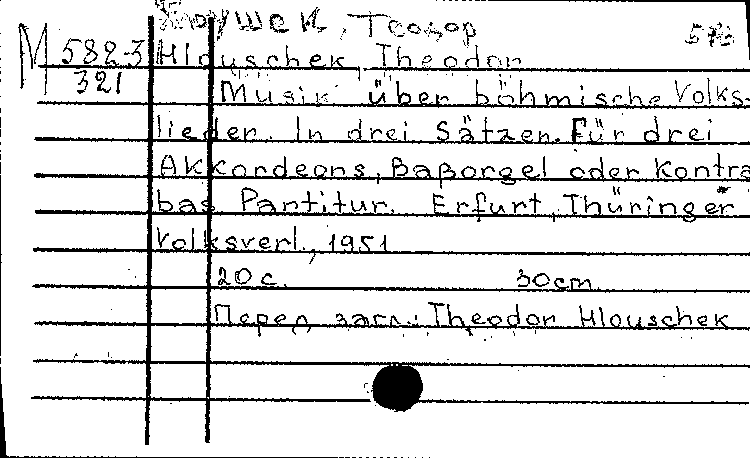 Хлоушек, Теодор
М 582-3 Hlouschek, Theodor
321 Musik über böhmische Volks-
lieder. In drei Sätzen. Für drei
Akkordeons, Baßorgel oder Kontra
bas Partitur. Erfurt, Thüringer
Volksverl., 1951
20 с. 30cm
Перед загл.: Theodor Hlouschek